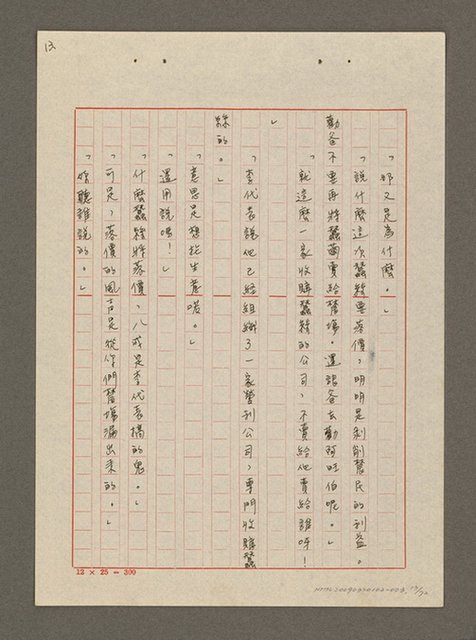 13.
「那又是為什麼。」
「說什麼這次蠶絲要落價，明明是剝削蠶民的利益。
勸爸不要再將蠶繭賣給蠶場。還請爸去勸阿旺伯呢。」
「就這麼一家收購蠶絲的公司，不賣給他賣給誰呀！
」
「李代表說他已經組織了一家營利公司，專門收購蠶
絲的。」
「意思是想搶生意嘍。」
「還用說嗎！」
「什麼蠶絲將落價，八成是李代表搞的鬼。」
「可是，落價的風声是從你們蠶場漏出來的。」
「你聽誰說的。」
12 × 25 = 300